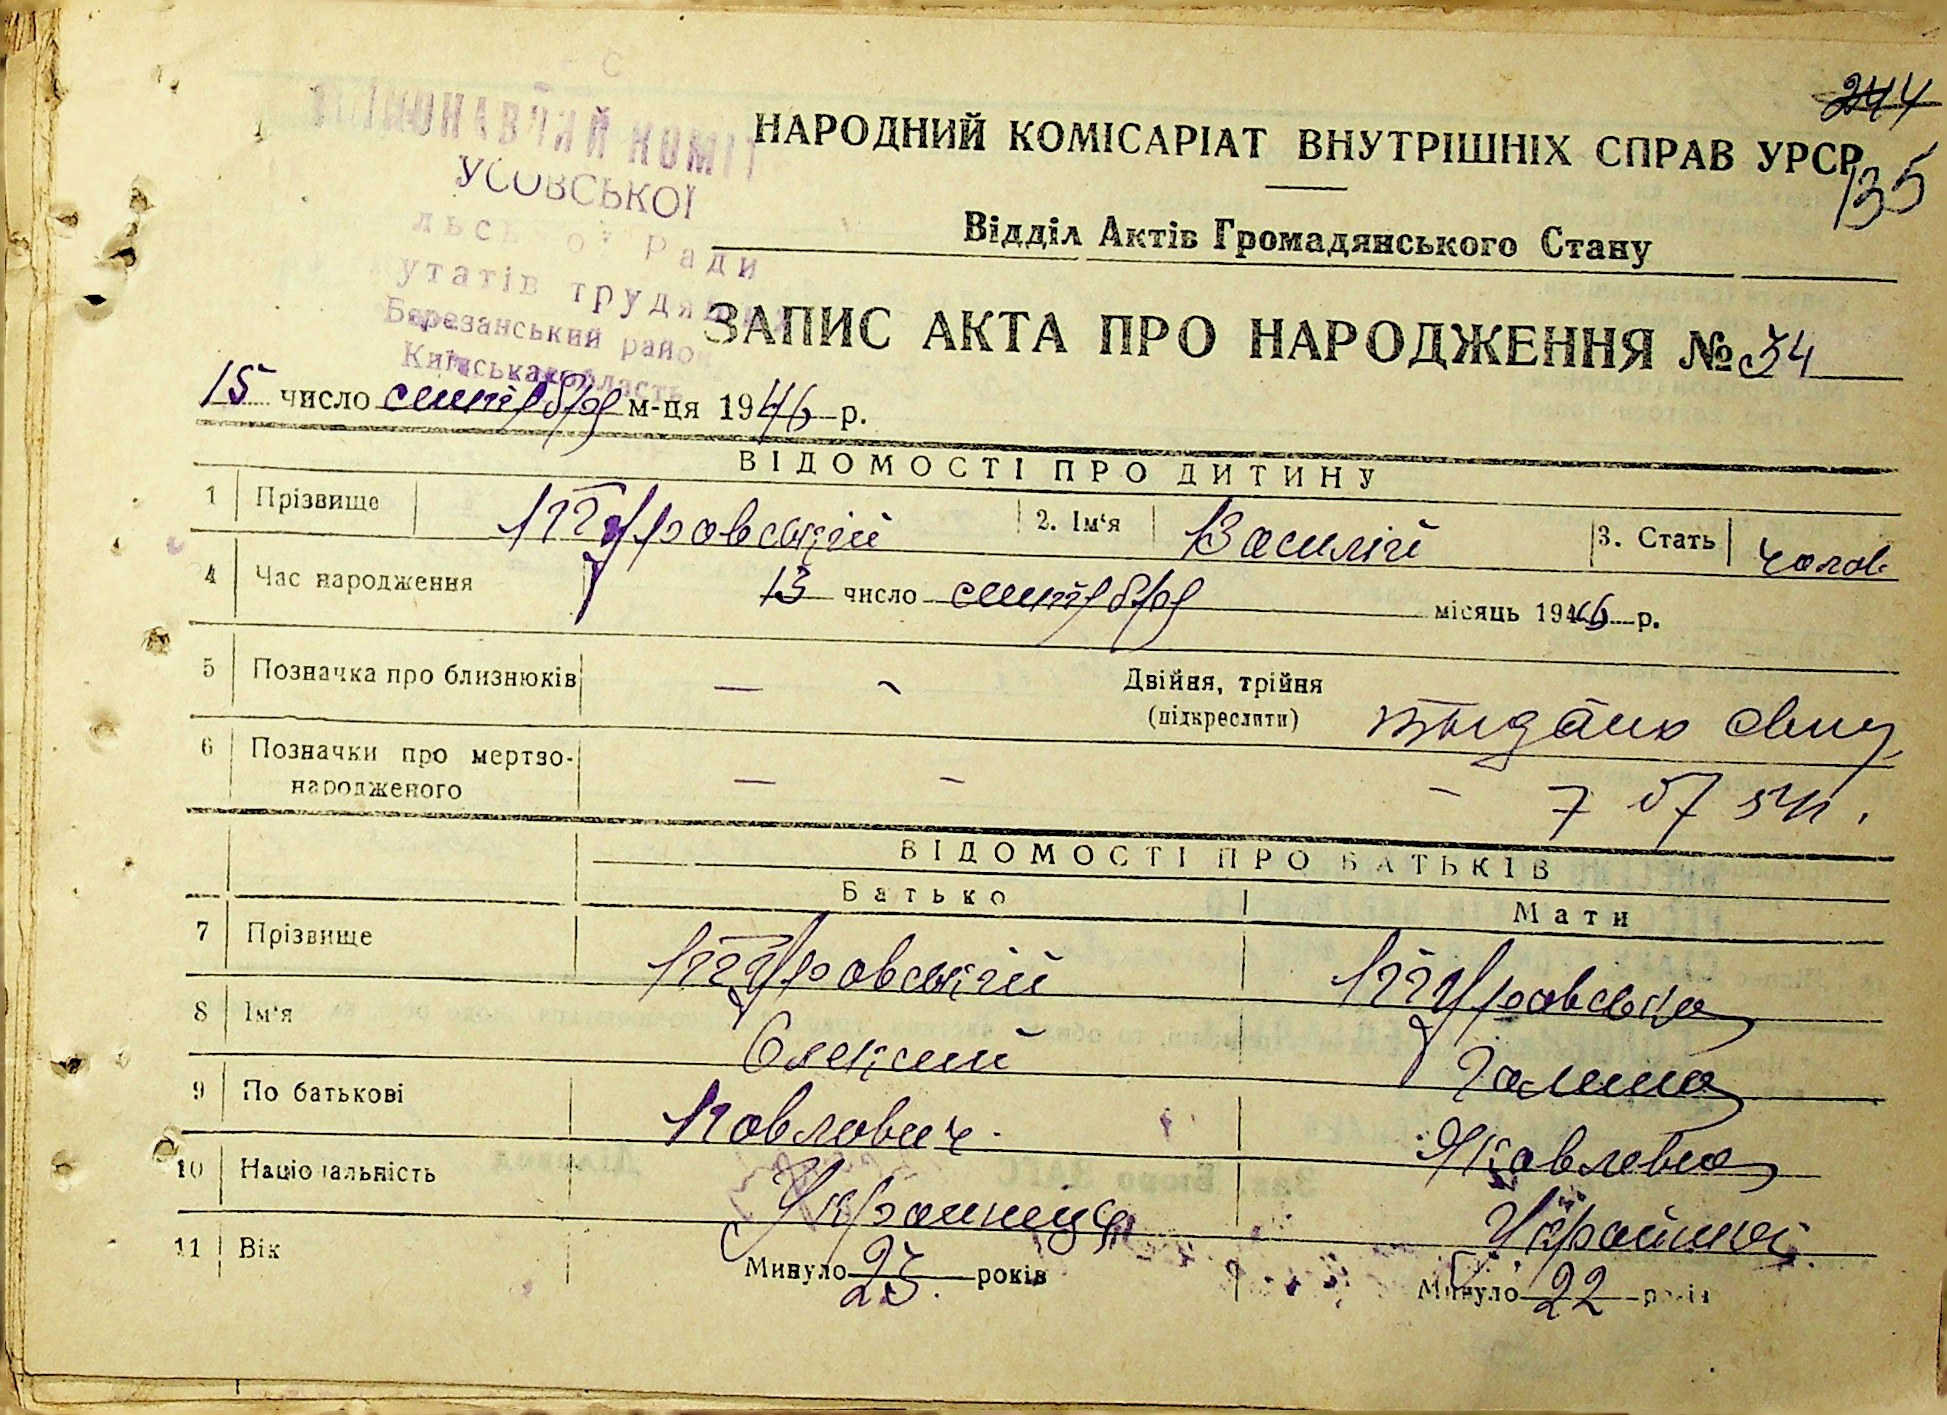 244
135
НАРОДНИЙ КОМІСАРІАТ ВНУТРІШНІХ СПРАВ УРСР
Відділ Актів Громадянського Стану
УСОВСЬКОЇ
Ради
утатів трудящих
Березанський район
Київська область
ЗАПИС АКТА ПРО НАРОДЖЕННЯ № 34
15 число сентября м-ця 1946 р.
ВІДОМОСТІ ПРО ДИТИНУ
1 Прізвище 2. Ім'я Василій 3. Стать чолов
4 Час народження 13 число сентября місяць 1946 р.
5 Позначка про близнюків — — Двійня, трійня
(підкреслити)
6 Позначки про мертво-
народженого — — —
ВІДОМОСТІ ПРО БАТЬКІВ
Батько Мати
7 Прізвище
8 Ім'я Олексий Галина
9 По батькові Павлович Яковлевна
10 Національність Украинець Украинка
11 Вік Минуло 23 років Минуло 22 років